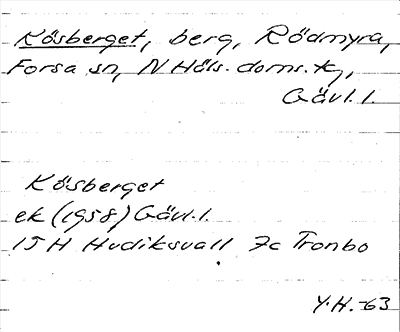 Kösberget, berg, Rödmyra,
Forsa sn, N Häls. doms. tg,
Gävl. l.
Kösberget
ek (1958) Gävl. l.
15H Hudiksvall 7c Tronbo
Y.H. -63